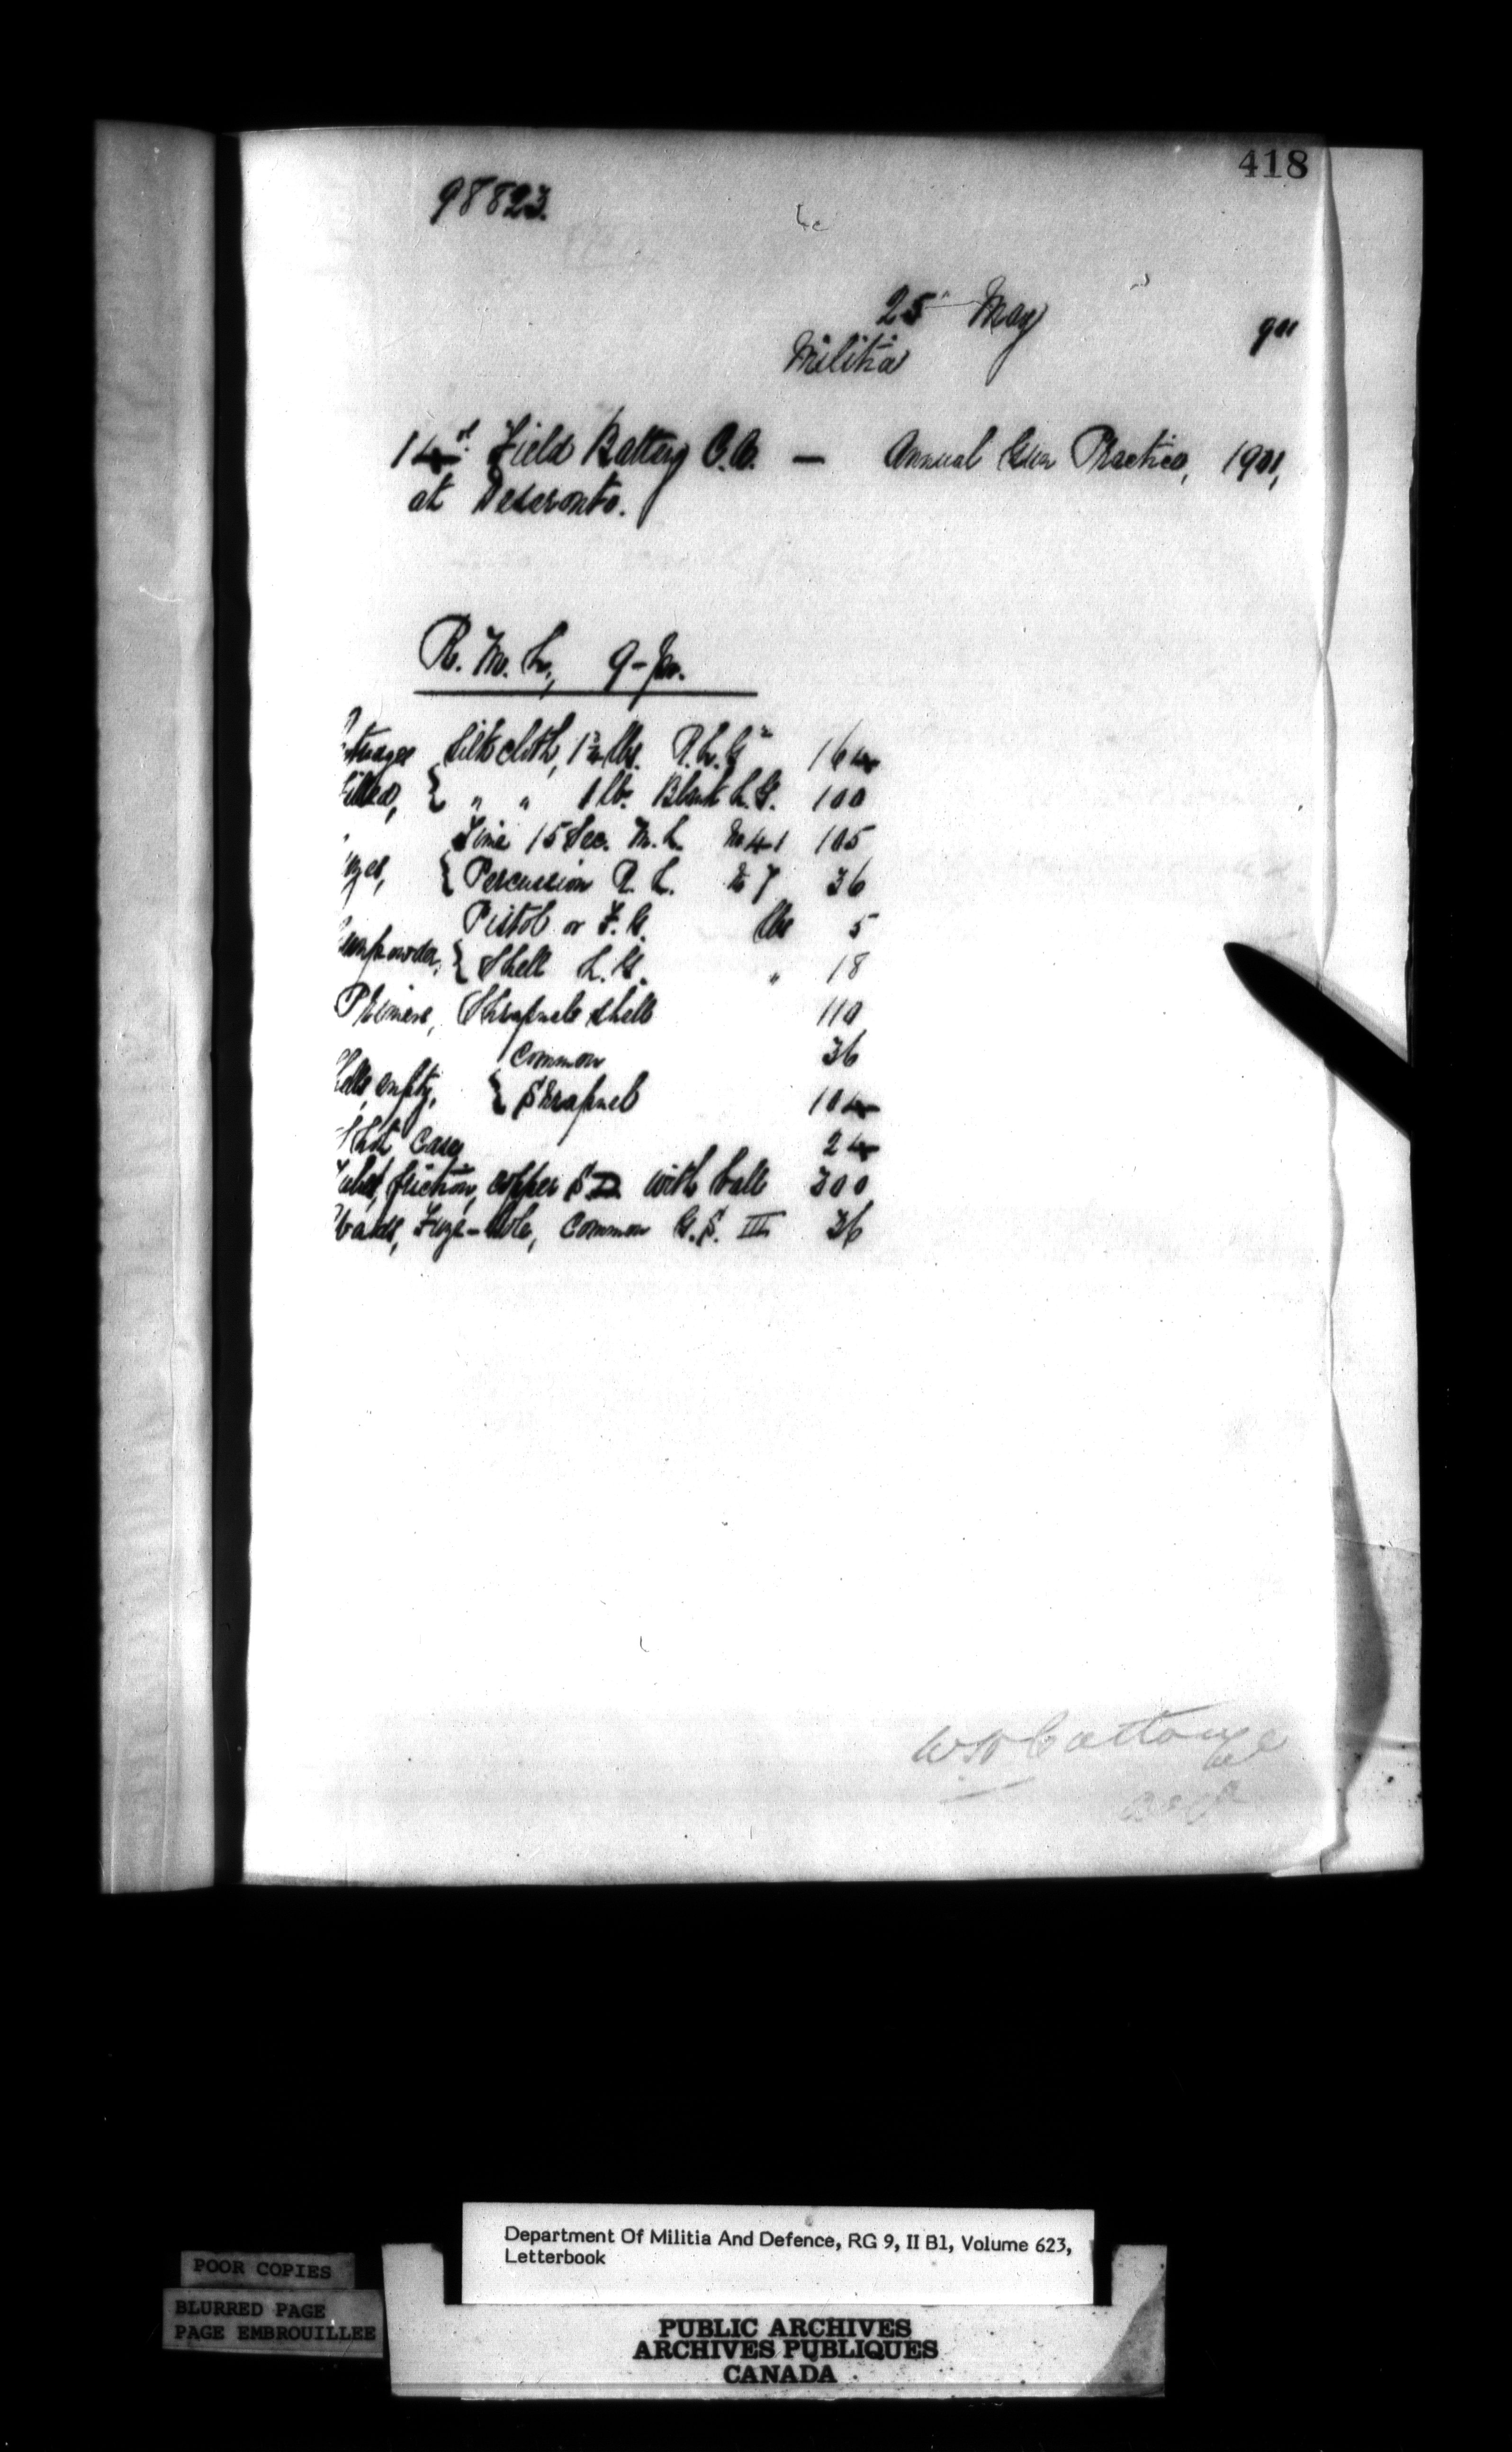 418
98823.
25th May 901
Militia
14th Field Battery C.A. — Annual Gun Practice, 1901,
at Deseronto.
R. M. L., 9-pr.
Silk cloth, 1¾ lbs. R.L.G² 164
illed, { " " 1 lb. Blank L.G. 100
Time 15 Sec. M.L. No 41 105
uzes, { Percussion R.L. No 7 36
Pistol or F.G. lbs 5
unpowder, { Shell L.G. " 18
Primers, Shrapnel shell 110
Common 36
hells, empty, { Shrapnel 104
Shot Case 24
Tubes, friction, copper S D with ball 300
Wads, Fuze-hole, Common G.S. III 36
Department Of Militia And Defence, RG 9, II B1, Volume 623,
Letterbook
POOR COPIES
BLURRED PAGE
PAGE EMBROUILLEE
PUBLIC ARCHIVES
ARCHIVES PUBLIQUES
CANADA